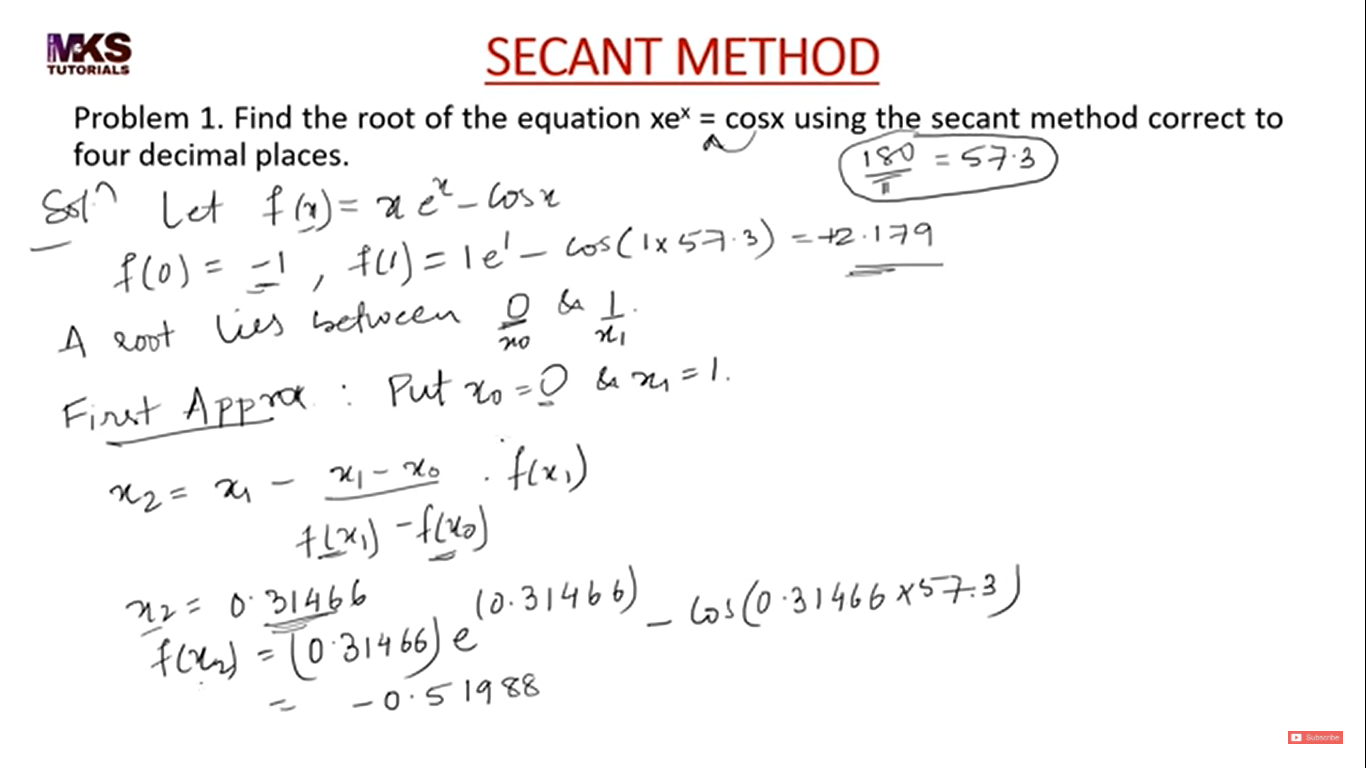 MKS
TUTORIALS
SECANT METHOD
Problem 1. Find the root of the equation xeˣ = cosx using the secant method correct to
four decimal places.
180/π = 57.3
Solⁿ Let f(x) = x eˣ - cosx
f(0) = -1 , f(1) = 1e¹ - cos(1×57.3) = +2.179
A root lies between 0 & 1.
x₀ x₁
First Approx : Put x₀ = 0 & x₁ = 1.
x₂ = x₁ - (x₁ - x₀)/(f(x₁) - f(x₀)) . f(x₁)
x₂ = 0.31466
f(x₂) = (0.31466) e^(0.31466) - cos(0.31466×57.3)
= -0.51988
Subscribe